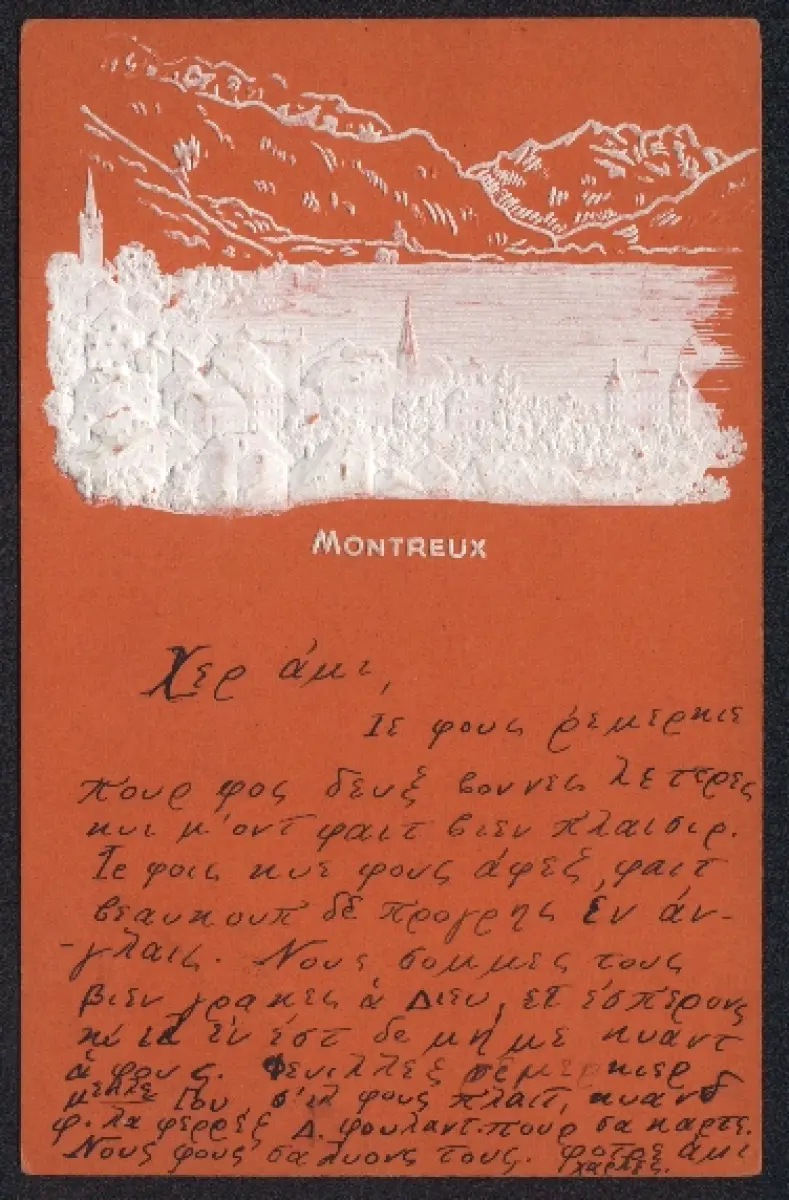 MONTREUX
Χερ άμι,
Ιε φους ῥεμερκιε
πουρ φος δευξ βοννες λεττρες
κυι μ'οντ φαιτ βιεν πλαισιρ.
Ιε φοις κυε φους ἀφεξ φαιτ
βεαυκουπ δε προγρης ἐν ἀν-
-γλαις. Νους σομμες τους
βιεν γρακες ἀ Διευ, ετ ἐσπερονς
ἐν ἐστ δε μημε κυαντ
ἀ φους. Φευιλλεξ ρεμερκιερ
μελλε Γου, σ'ιλ φους πλαιτ, κυανδ
φ. λα φερρεξ Δ. φουλαντ πουρ σα καρτε.
Νους φους σαλυονς τους. φοτρε ἀμι
χαρλες.